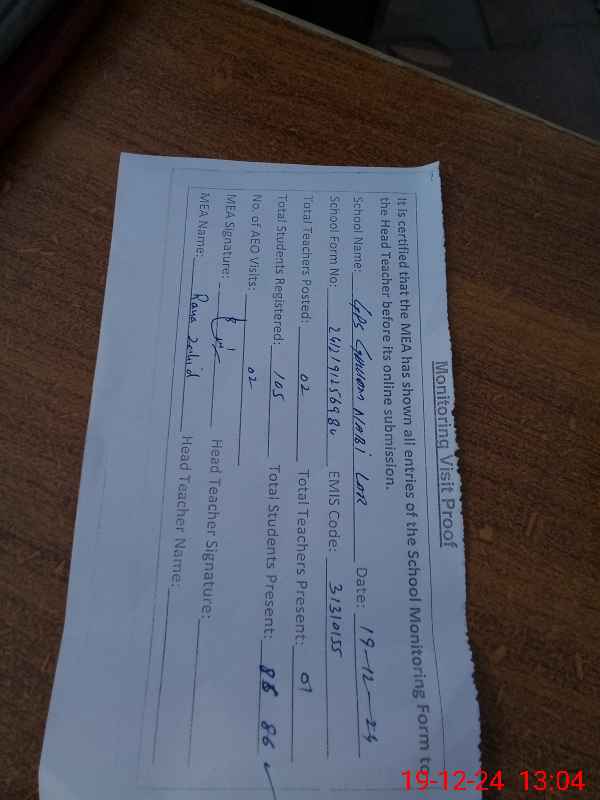 Monitoring Visit Proof
It is certified that the MEA has shown all entries of the School Monitoring Form to
the Head Teacher before its online submission.
School Name: GPS Ghulam Nabi Lar Date: 19-12-24
School Form No: 241219125698u EMIS Code: 31310155
Total Teachers Posted: 02 Total Teachers Present: 01
Total Students Registered: 105 Total Students Present: 86
No. of AEO Visits: 02
MEA Signature: Head Teacher Signature:
MEA Name: Rana Zahid Head Teacher Name:
19-12-24 13:04